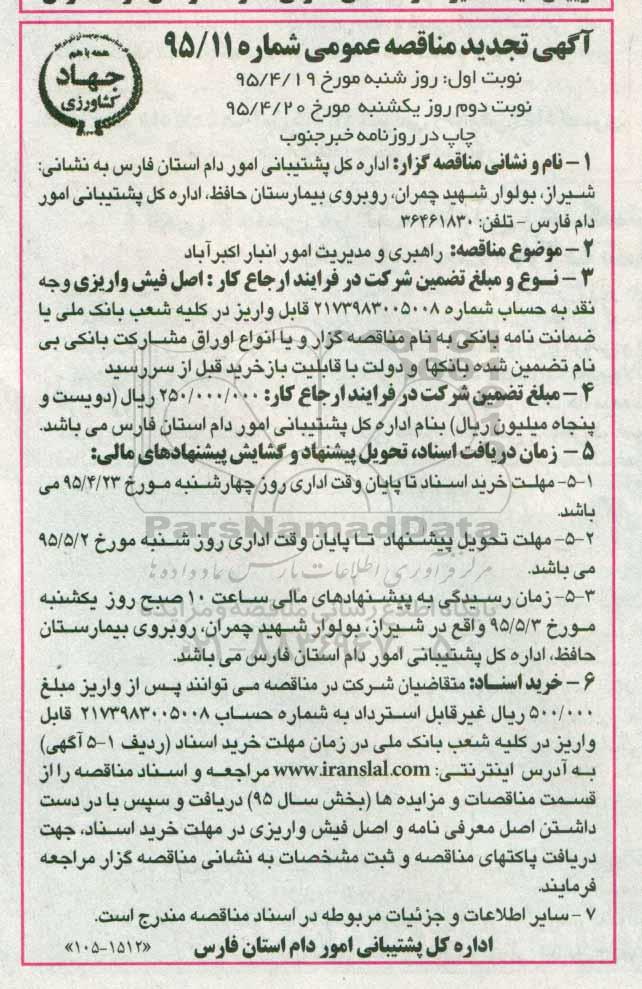 آگهی تجدید مناقصه عمومی شماره ۹۵/۱۱
همه با هم
جهاد
کشاورزی
نوبت اول: روز شنبه مورخ ۹۵/۴/۱۹
نوبت دوم روز یکشنبه مورخ ۹۵/۴/۲۰
چاپ در روزنامه خبرجنوب
۱- نام و نشانی مناقصه گزار: اداره کل پشتیبانی امور دام استان فارس به نشانی:
شیراز، بولوار شهید چمران، روبروی بیمارستان حافظ، اداره کل پشتیبانی امور
دام فارس - تلفن: ۳۶۴۶۱۸۳۰
۲- موضوع مناقصه: راهبری و مدیریت امور انبار اکبرآباد
۳- نوع و مبلغ تضمین شرکت در فرایند ارجاع کار: اصل فیش واریزی وجه
نقد به حساب شماره ۲۱۷۳۹۸۳۰۰۵۰۰۸ قابل واریز در کلیه شعب بانک ملی یا
ضمانت نامه بانکی به نام مناقصه گزار و یا انواع اوراق مشارکت بانکی بی
نام تضمین شده بانکها و دولت با قابلیت بازخرید قبل از سررسید
۴- مبلغ تضمین شرکت در فرایند ارجاع کار: ۲۵۰/۰۰۰/۰۰۰ ریال (دویست و
پنجاه میلیون ریال) بنام اداره کل پشتیبانی امور دام استان فارس می باشد.
۵- زمان دریافت اسناد، تحویل پیشنهاد و گشایش پیشنهادهای مالی:
۵-۱- مهلت خرید اسناد تا پایان وقت اداری روز چهارشنبه مورخ ۹۵/۴/۲۳ می
باشد.
۵-۲- مهلت تحویل پیشنهاد تا پایان وقت اداری روز شنبه مورخ ۹۵/۵/۲
می باشد.
۵-۳- زمان رسیدگی به پیشنهادهای مالی ساعت ۱۰ صبح روز یکشنبه
مورخ ۹۵/۵/۳ واقع در شیراز، بولوار شهید چمران، روبروی بیمارستان
حافظ، اداره کل پشتیبانی امور دام استان فارس می باشد.
۶- خرید اسناد: متقاضیان شرکت در مناقصه می توانند پس از واریز مبلغ
۵۰۰/۰۰۰ ریال غیرقابل استرداد به شماره حساب ۲۱۷۳۹۸۳۰۰۵۰۰۸ قابل
واریز در کلیه شعب بانک ملی در زمان مهلت خرید اسناد (ردیف ۱-۵ آگهی)
به آدرس اینترنتی: www.iranslal.com مراجعه و اسناد مناقصه را از
قسمت مناقصات و مزایده ها (بخش سال ۹۵) دریافت و سپس با در دست
داشتن اصل معرفی نامه و اصل فیش واریزی در مهلت خرید اسناد، جهت
دریافت پاکتهای مناقصه و ثبت مشخصات به نشانی مناقصه گزار مراجعه
فرمایند.
۷- سایر اطلاعات و جزئیات مربوطه در اسناد مناقصه مندرج است.
اداره کل پشتیبانی امور دام استان فارس «۱۰۵-۱۵۱۲»
ParsNamadData
مرکز فرآوری اطلاعات پارس نماد داده ها
پایگاه اطلاع رسانی مناقصه و مزایده